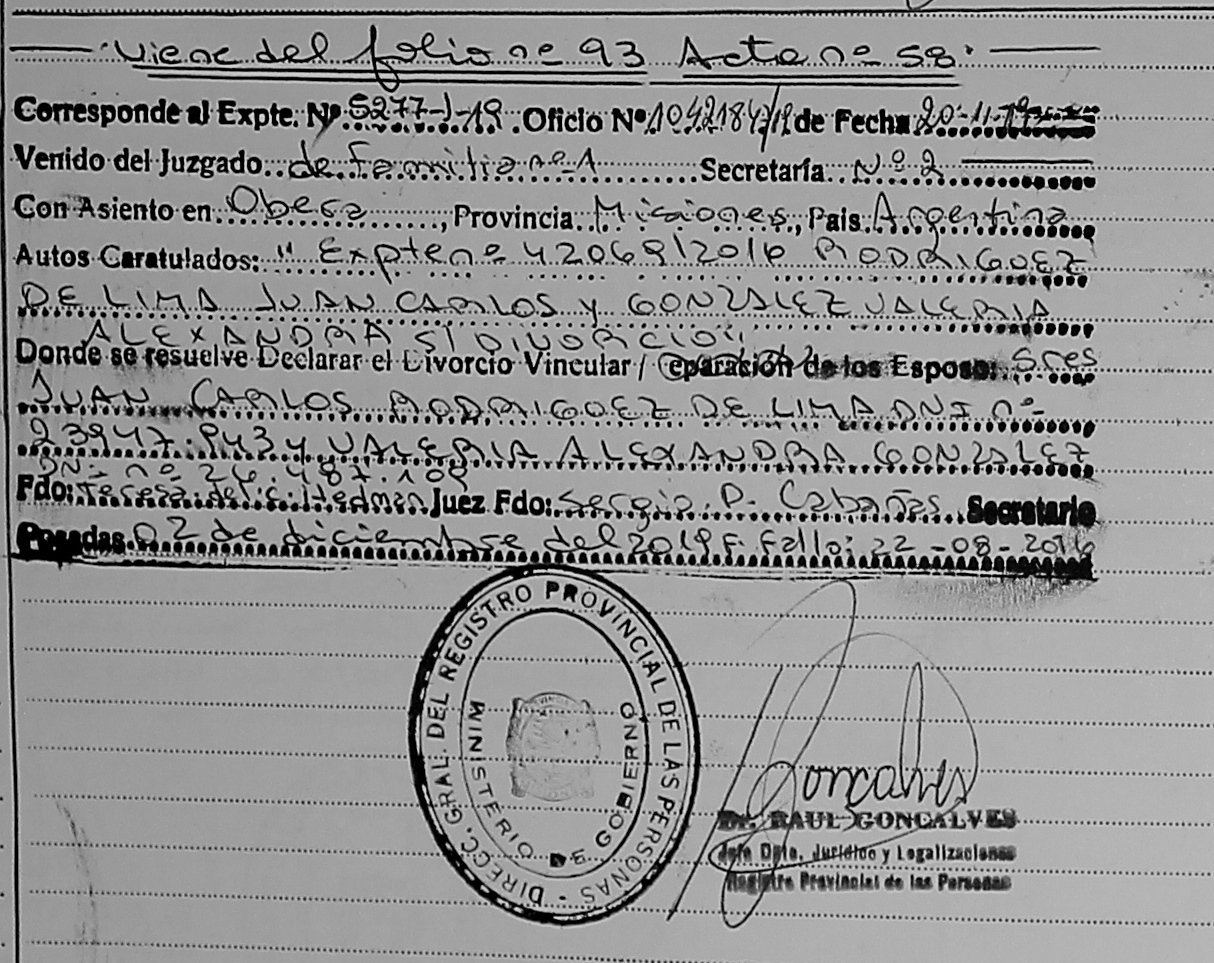 Viene del folio nº 93 Acta nº 58.
Corresponde al Expte. Nº 5277-J-19 .Oficio Nº 1042184/19 de Fecha 20-11-19
Venido del Juzgado de Familia nº 1 Secretaría Nº 2
Con Asiento en Obera, Provincia Misiones, Pais Argentina
Autos Caratulados: "Expte nº 42069/2016 RODRIGUEZ
DE LIMA JUAN CARLOS Y GONZALEZ VALERIA
ALEXANDRA S/DIVORCIO"
Donde se resuelve Declarar el Divorcio Vincular / Separación de los Esposos Sres
JUAN CARLOS RODRIGUEZ DE LIMA DNI nº
23947.943 y VALERIA ALEXANDRA GONZALEZ
DNI nº 24.487.109
Fdo: Teresa del C. Hedman Juez Fdo: Sergio P. Cabañas Secretario
Posadas 02 de diciembre del 2019 F. Fallo: 22-08-2016
DIRECC. GRAL. DEL REGISTRO PROVINCIAL DE LAS PERSONAS -
MINISTERIO DE GOBIERNO
Goncalves
Dr. RAUL GONCALVES
Jefe Dpto. Jurídico y Legalizaciones
Registro Provincial de las Personas